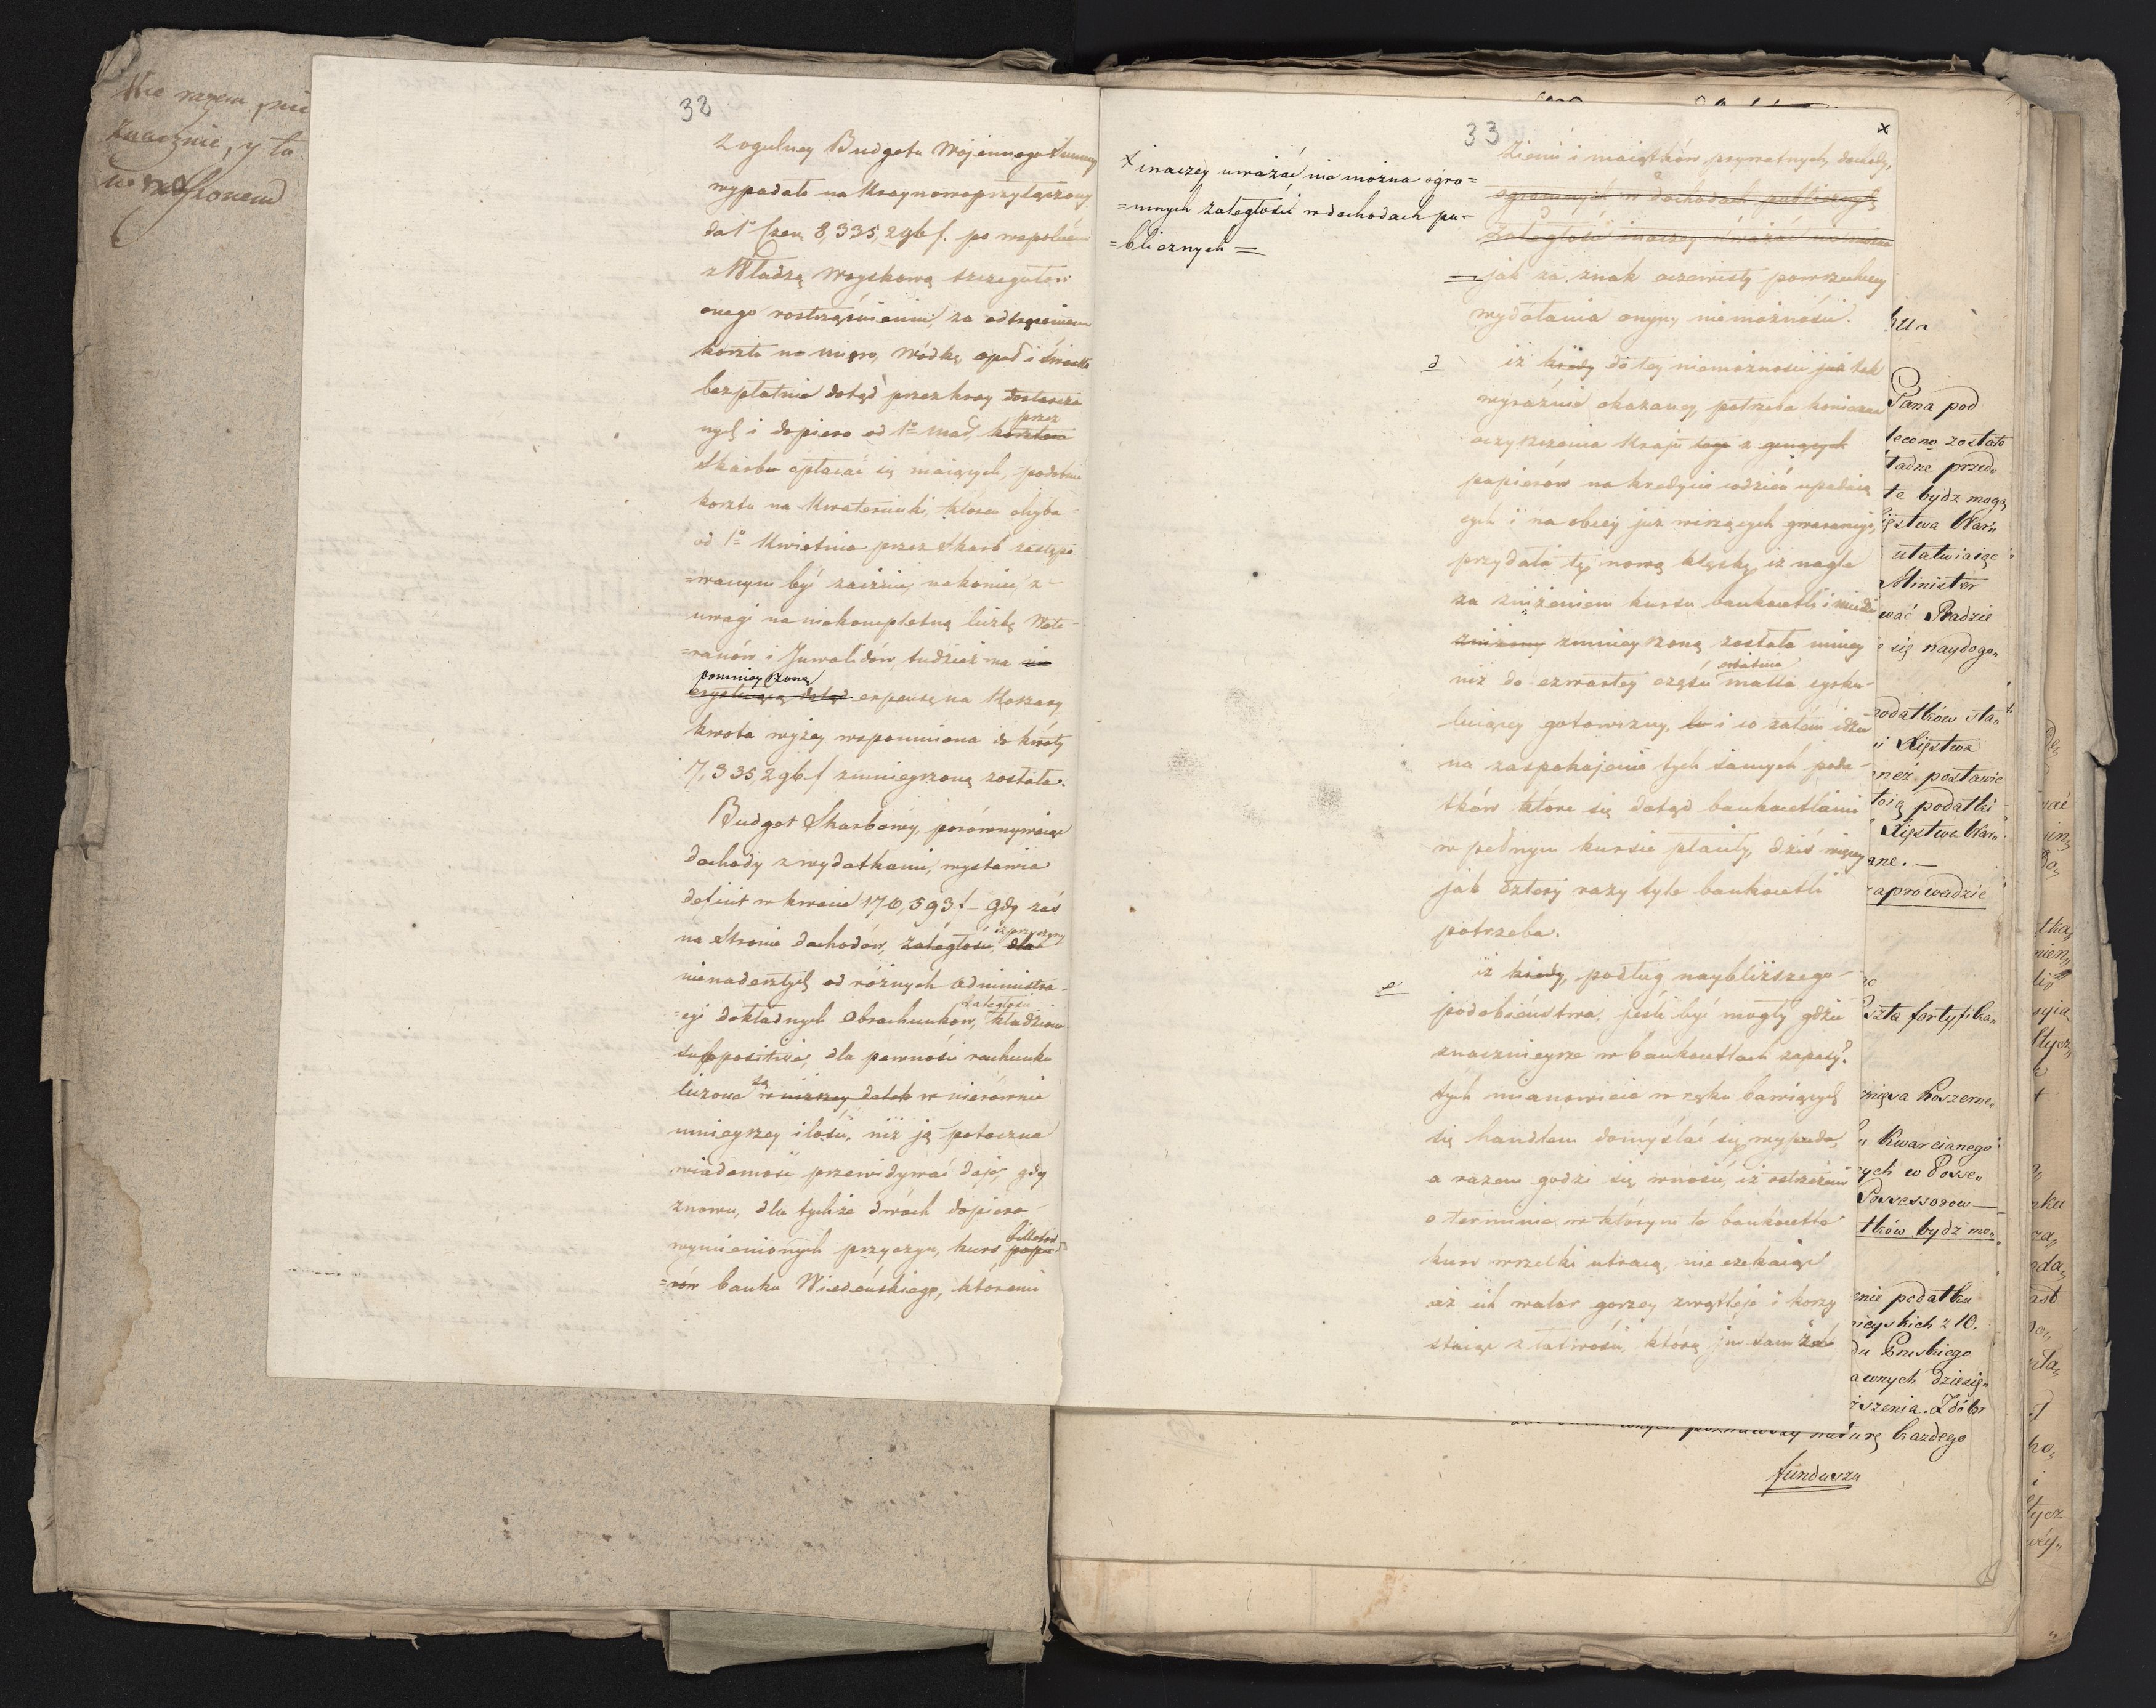 Nie razem, nie
znacznie, y to
32
Z ogulney Budgetu Wojennego Summy
wypadało na Kray nowoprzyłączony
do 1º Czer. 8,335,296 f. po wspólném
z Władzą Woyskową szczegułów
onego rostrząśnieniu, za odtrąceniem
kosztu na mięso, wódkę, opał i światło
bezpłatnie dotąd przez kray dostarcza
przez
nych i dopiero od 1º maj, kosztem
Skarbu opłacać się maiących, podobnie
kosztu na Kwaterunki, które chyba
od 1º Kwietnia przez Skarb zastępo
=wanym być zacznie, nakoniec z
uwagi na niekompletną liczbę Wete-
=ranów i Inwalidów, tudzież na
pomnieyszoną
expensę na Koszary
kwota wyżey wspomniona do kwoty
7,335,296 f zmnieyszoną została.
Budget Skarbowy, porównywając
dochody z wydatkami, wystawia
deficit w kwocie 170,593 f – gdy zaś
z przyczyny
na stronie dochodów, zaległości, dla
nienadeszłych od różnych administra-
zaległości
=cyi dokładnych Obrachunków, kładzione
suppositive, dla pewności rachunku
są
liczone w niższey dotąd w nierównie
mnieyszey ilości, niż ją potoczna
wiadomość przewidywać daje, gdy
znowu, dla tychże dwóch dopiero
billetów
wymienionych przyczyn, kurs papie
=rów banku Wiedeńskiego, któremi
33
x
x inaczey uważać nie można ogro=
=mnych zaległości w dochodach pu-
=blicznych =
Ziemi i maiątków prywatnych dochody,
ogromnych w dochodach publicznych
zaległości inaczey uważać nie można
= jak za znak oczewisty powszechney
wydołania onym niemożności.
d
iż kiedy do tey niemożności już tak
wyraźnie okazaney, potrzeba konieczna
oczyszczenia Kraju tego z ginących
papierów na kredycie codzień upadaią
cych i na obcey już wiszących gwarancyi,
przydała tę nową klęskę iż nagle
za zniżeniem kursu bankocetli i miedzi
zniżony zmnieyszoną została mniey
ostatnia
niż do czwartey części massa cyrku-
luiącey gotowizny, i co zatem idzie
na zaspokojenie tych samych poda-
tków które się dotąd bankocetlami
w pełnym kursie płaciły, dziś więcey
jak cztery razy tyle bankocetli
potrzeba.
e
iż kiedy, podług naybliższego
podobieństwa, jeśli być mogły gdzie
znacznieysze w bankocetlach zapasy?
tych mianowicie w ręku bawiących
się handlem domyślać się wypada,
a razem godzi się wnosić, iż ostrzeżeni
o terminie w którym te bankocetle
kurs wszelki utracą, nie czekaiąc
aż ich walor gorzey zwątleje i korzy
staiąc z łatwości, którą im sam
Pana pod
lecono zostało
ładne przed„
te bydz mogą
ięstwa War„
ułatwiaiąc
Minister
wać Radzie
się naydogo„
podatków sta„
Xięstwa
nież postawic
podatki
Xięstwa War„
ane. —
zaprowadzić
szta fortyfika„
Koszerne„
Kwarcianego
ych w Posse„
Possessorow —
tków bydz mo„
enie podatku
mieyskich z 10.
du Pruskiego
awnych dziesię„
naturę każdego
funduszu